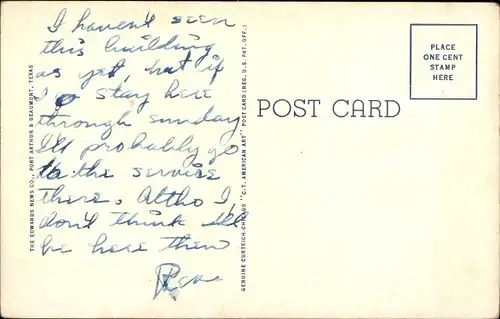 I haven't seen
this building
as yet, but if
I do stay here
through sunday
I'll probably go
to the service
there. Altho I
don't think I'll
be here then
THE EDWARDS NEWS CO., PORT ARTHUR & BEAUMONT, TEXAS
GENUINE CURTEICH-CHICAGO "C.T. AMERICAN ART" POST CARD (REG. U.S. PAT. OFF.)
POST CARD
PLACE
ONE CENT
STAMP
HERE